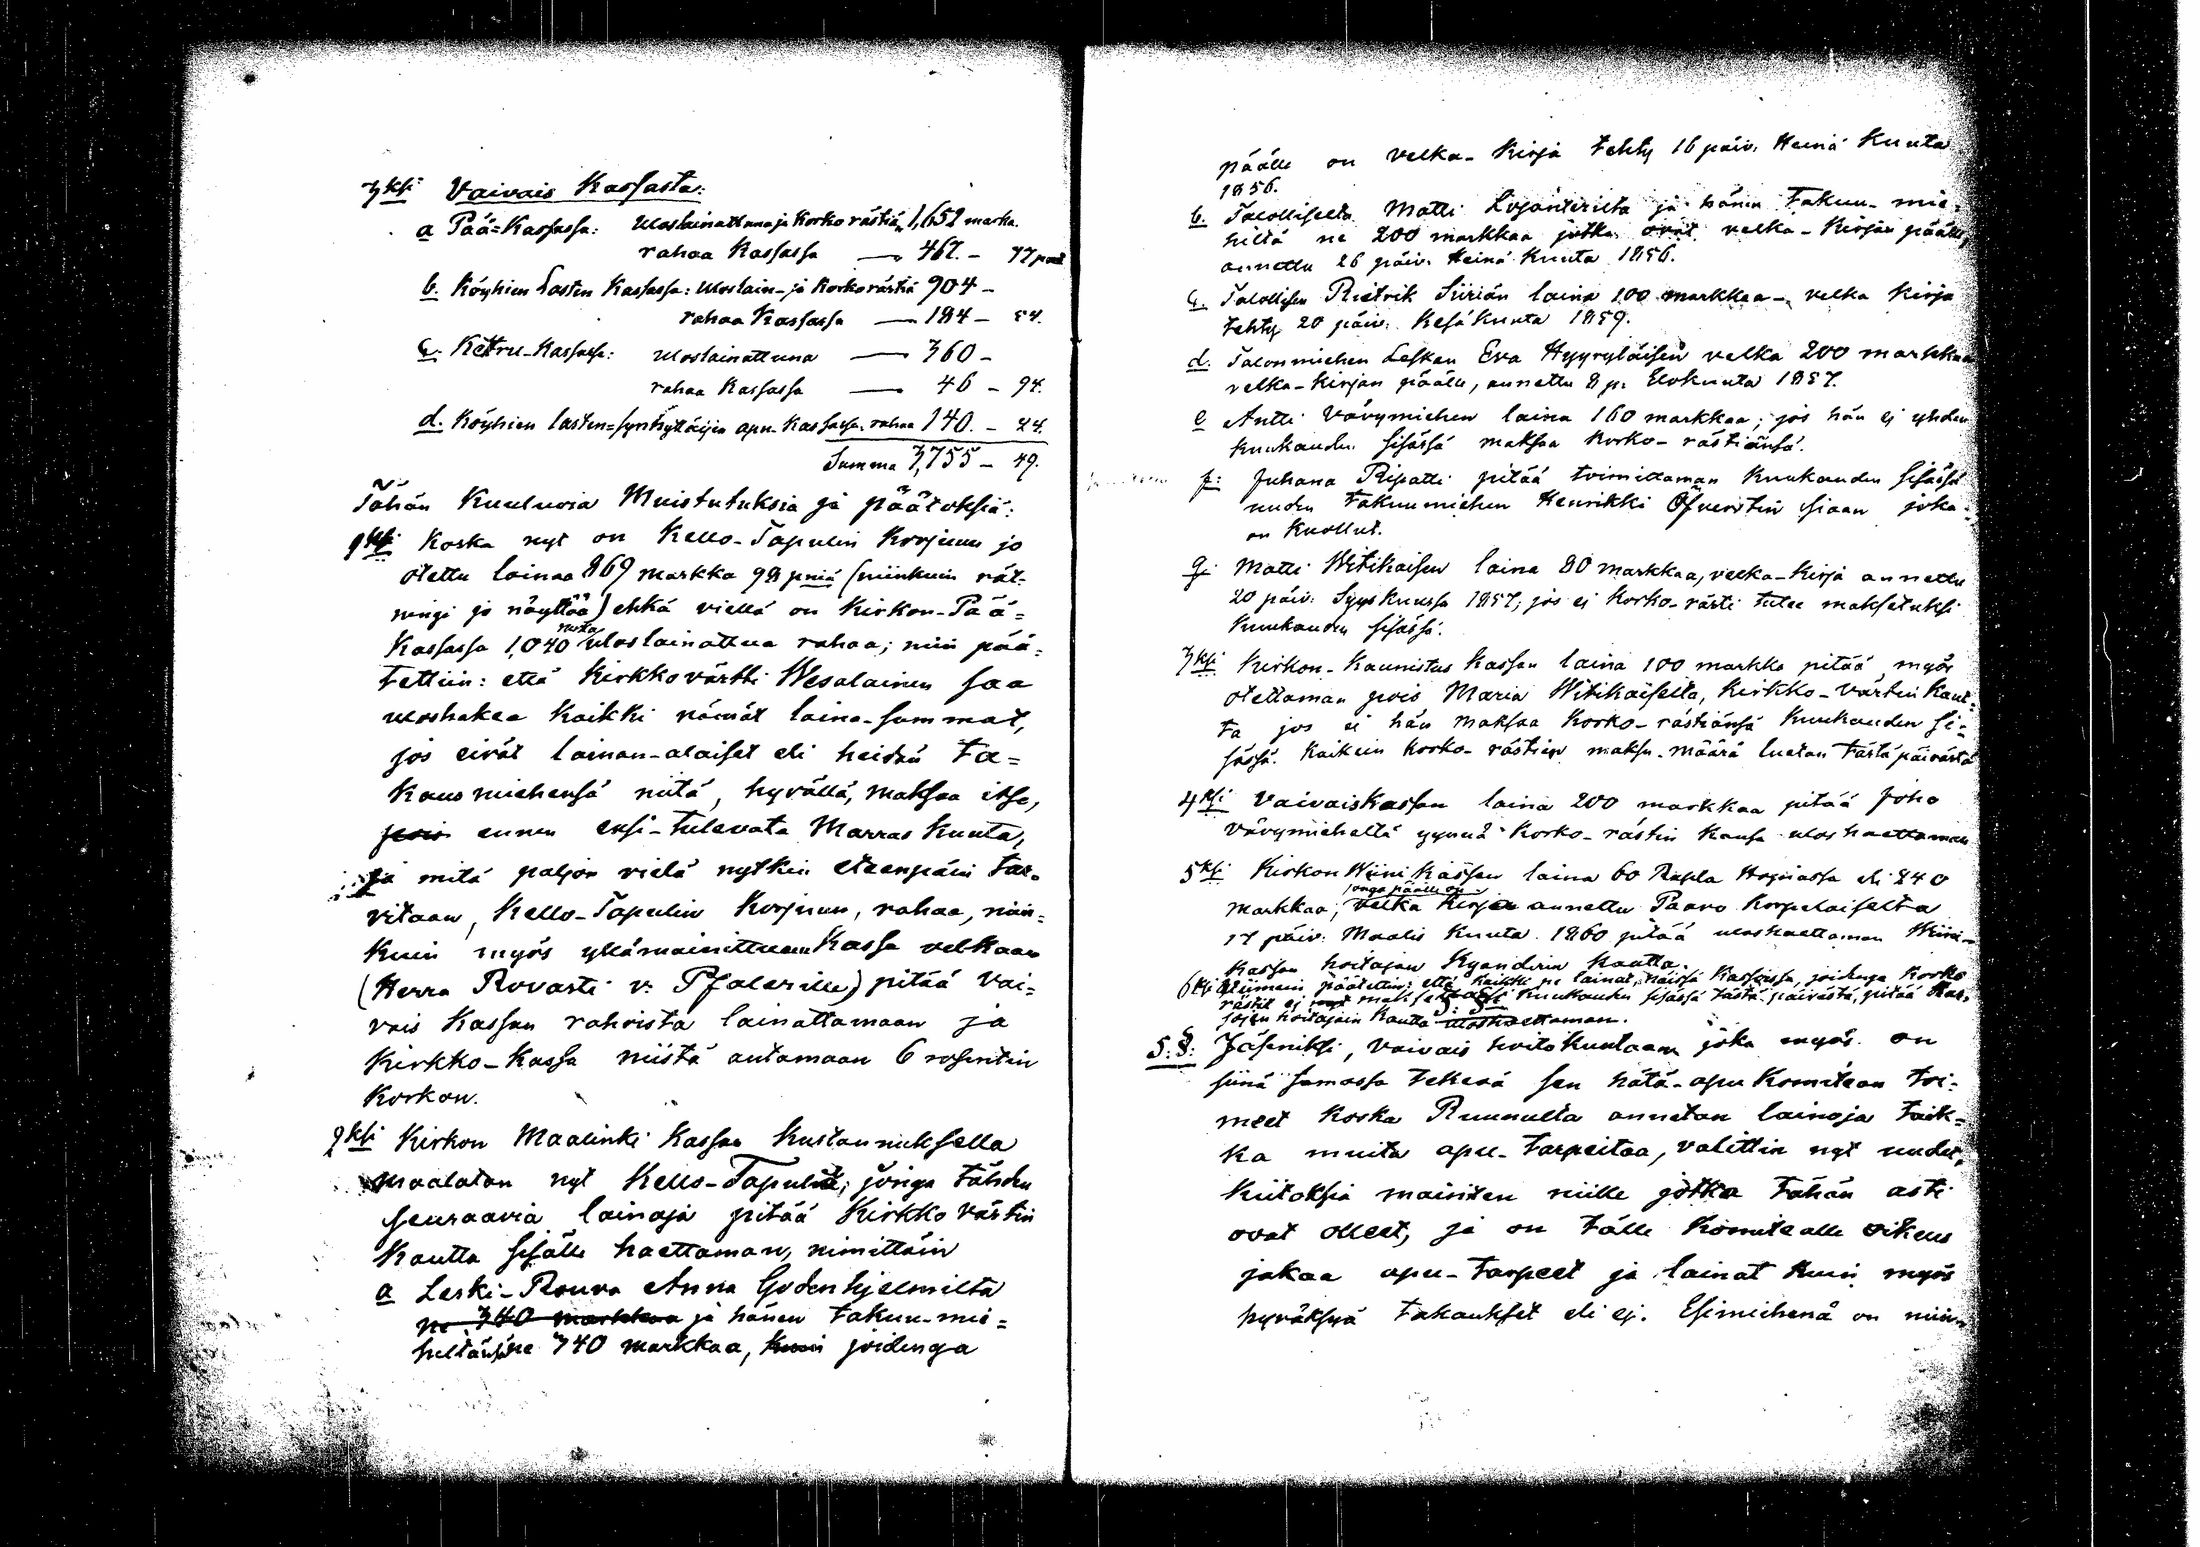 3ksi Vaivais Kassasta:
a Pää=Kassassa: Uloslainattuna ja Korko rästiä 1,652 marka.
rahaa Kassassa — 467. — 77 penn
b. Köyhien Lasten Kassassa: Uloslain- ja Korko rästiä 904 —
rahaa Kassassa — 184 — 54.
c. Kettru-Kassassa: uloslainattuna — 360 —
rahaa Kassassa — 46 — 94.
d. Köyhien lasten=synnyttäjän apu-Kassassa. rahaa 140. — 24.
Summa 3,755 — 49.
Tähän Kuuluvia Muistutuksia ja päätöksiä:
1ksi Koska nyt on Kello-Tapulin Korjuun jo
otettu lainaa 869 markka 98 pniä (niinkuin rät-
ningi jo näyttää) ehkä viellä on Kirkon-Pää=
Kassassa 1,040 marka uloslainattua rahaa; niin pää=
tettiin: että Kirkkovärtti Wesalainen saa
uloshakea Kaikki nämät laina-summat,
jos eivät lainan-alaiset eli heidän ta=
kausmiehensä niitä, hyvällä, maksaa itse,
pois ennen ensi-tulevata Marras Kuuta,
ja mitä paljon vielä nytkin eteenpäin tar-
vitaan, Kello-Tapulin Korjuun, rahaa, niin=
kuin myös yllämainittuun Kassa velkaan
(Herra Rovasti v. Pfalerille) pitää Vai=
vais Kassan rahoista lainattamaan ja
Kirkko-Kassa niistä antamaan 6 rosentin
Korkon.
2ksi Kirkon Maalinki Kassan Kustannuksella
maalatan nyt Kello-Tapulit; jonga tähden
seuraavia lainoja pitää Kirkko värtin
Kautta sisälle haettaman, nimittäin
a Leski-Rouva Anna Godenhjelmiltä
ne 340 markkaa ja hänen takuu-mie=
hiltänsä ne 340 markkaa, kuin joidenga
päälle on velka-Kirja tehty 16 päiv. Heinä Kuuta
1856.
b. Talolliselta Matti Lojanterilta ja hänen takuu-mie-
hiltä ne 200 markkaa jotka ovat velka-Kirjan päälle,
annettu 26 päiv. Heinä Kuuta 1856.
c. Talollisen Pietrik Siiriän laina 100 markkaa — velka Kirja
tehty 20 päiv. Kesä Kuuta 1859.
d. Talonmiehen Lesken Eva Hyyryläisen velka 200 markkaa
velka-Kirjan päälle, annettu 8 p. Elokuuta 1857.
e Antti Vävymiehen laina 160 markkaa; jos hän ej yhden
Kuukauden sisässä maksaa Korko-rästiänsä.
f: Juhana Ripatti pitää toimittaman Kuukauden sisässä
uuden takuumiehen Henrikki siaan joka
on Kuollut.
g. Matti Witikaisen laina 80 markkaa, velka-Kirja annettu
20 päiv. Syyskuussa 1857; jos ej Korko-rästi tulee maksetuksi
Kuukauden sisässä.
3ksi Kirkon-Kaunistus Kassan laina 100 markka pitää myös
otettaman pois Maria Witikaiselta, Kirkko-värtin Kaut=
ta jos ei hän maksaa Korko-rästiänsä Kuukauden si=
sässä. Kaikein Korko-rästien maksu-määrä luetan tästä päivästä
4ksi Vaivaiskassan laina 200 markkaa pitää Joho
Vävymieheltä ynnä Korko-rästin Kansa ulos haettaman
5ksi Kirkon Wiini Kassan laina 60 Rupla Hopiassa eli 240
markkaa; jonga päälle on velka Kirja annettu Paavo Korpelaiselta
17 päiv. Maalis Kuuta 1860 pitää uloshaettaman Wiini-
Kassan hoitajan Kyanderin Kautta.
6ksi päätettiin: että Kaikki ne lainat, näissä Kassoissa, joidenga Korko
rästit ej nyt maksetaan Kuukauden sisässä tästä päivästä, pitää Kas-
sojen hoitajain Kautta uloshaettaman.
5.§. Jäseniksi, Vaivais hoitokuntaan joka myös on
siinä samassa tekevä sen hätä-apu Komitean toi-
meet Koska Ruunulta annetan lainoja taik=
ka muita apu-tarpeitaa, valittiin nyt uudet,
Kiitoksia mainiten niille jotka tähän asti
ovat olleet, ja on tälle Komitealle oikeus
jakaa apu-tarpeet ja lainat kuin myös
hyväksyä takaukset eli ej. Esimiehenä on niin-